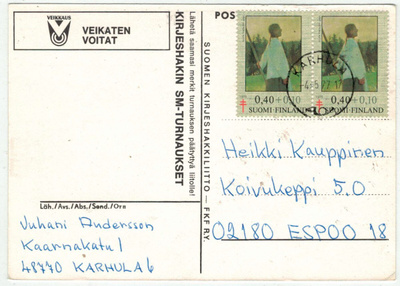 VEIKKAUS
VEIKATEN
VOITAT
Lähetä saamasi merkit turnauksen päätyttyä liitolle!
KIRJESHAKIN SM-TURNAUKSET
SUOMEN KIRJESHAKKILIITTO — FKF R.Y.
POS
KARHULA
0,40+0,10
SUOMI-FINLAND
0,40+0,10
SUOMI-FINLAND
Heikki Kauppinen
Koivukeppi 5.0
02180 ESPOO 18
Läh./Avs./Abs./Send./Отп
Juhani Andersson
Kaarnakatu 1
48770 KARHULA 6